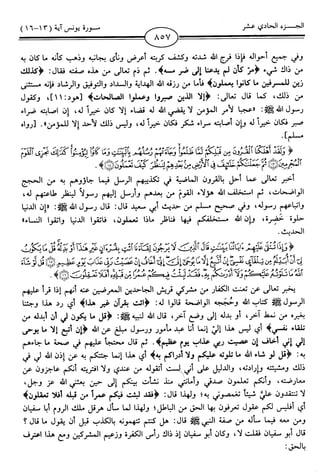 الجزء الحادي عشر
٨٥٧
سورة يونس آية (١٣-١٦)
وفي جميع أحواله فإذا فرج الله شدته وكشف كربته أعرض ونأى بجانبه وذهب كأنه ما كان به
من ذاك شيء ﴿مرّ كأن لم يدعنا إلى ضر مسه﴾. ثم ذم تعالى من هذه صفته فقال: ﴿كذلك
زين للمسرفين ما كانوا يعملون﴾ فأما من رزقه الله الهداية والسداد والتوفيق والرشاد فإنه مستثنى
من ذلك، كما قال تعالى: ﴿إلا الذين صبروا وعملوا الصالحات﴾ [هود:١١]، وكقول
رسول الله ﷺ: «عجباً لأمر المؤمن لا يقضي الله له قضاء إلا كان خيراً له، إن أصابته ضراء
صبر فكان خيراً له وإن أصابته سراء شكر فكان خيراً له، وليس ذلك لأحد إلا للمؤمن». [رواه
مسلم].
﴿وَلَقَدْ أَهْلَكْنَا الْقُرُونَ مِن قَبْلِكُمْ لَمَّا ظَلَمُوا وَجَاءَتْهُمْ رُسُلُهُم بِالْبَيِّنَاتِ وَمَا كَانُوا لِيُؤْمِنُوا كَذَلِكَ نَجْزِي الْقَوْمَ
الْمُجْرِمِينَ ۝ ثُمَّ جَعَلْنَاكُمْ خَلَائِفَ فِي الْأَرْضِ مِن بَعْدِهِمْ لِنَنظُرَ كَيْفَ تَعْمَلُونَ ۝﴾.
أخبر تعالى عما أحل بالقرون الماضية في تكذيبهم الرسل فيما جاؤوهم به من الحجج
الواضحات، ثم استخلف الله هؤلاء القوم من بعدهم وأرسل إليهم رسولاً لينظر طاعتهم له،
واتباعهم رسوله، وفي صحيح مسلم من حديث أبي سعيد قال: قال رسول الله ﷺ: «إن الدنيا
حلوة خضرة، وإن الله مستخلفكم فيها فناظر ماذا تعملون، فاتقوا الدنيا واتقوا النساء»
الحديث.
﴿وَإِذَا تُتْلَى عَلَيْهِمْ آيَاتُنَا بَيِّنَاتٍ قَالَ الَّذِينَ لَا يَرْجُونَ لِقَاءَنَا ائْتِ بِقُرْآنٍ غَيْرِ هَذَا أَوْ بَدِّلْهُ قُلْ مَا يَكُونُ
لِي أَنْ أُبَدِّلَهُ مِن تِلْقَاءِ نَفْسِي إِنْ أَتَّبِعُ إِلَّا مَا يُوحَى إِلَيَّ إِنِّي أَخَافُ إِنْ عَصَيْتُ رَبِّي عَذَابَ يَوْمٍ عَظِيمٍ ۝ قُل لَّوْ
شَاءَ اللَّهُ مَا تَلَوْتُهُ عَلَيْكُمْ وَلَا أَدْرَاكُم بِهِ فَقَدْ لَبِثْتُ فِيكُمْ عُمُرًا مِّن قَبْلِهِ أَفَلَا تَعْقِلُونَ ۝﴾.
يخبر تعالى عن تعنت الكفار من مشركي قريش الجاحدين المعرضين عنه أنهم إذا قرأ عليهم
الرسول ﷺ كتاب الله وحججه الواضحة قالوا له: ﴿ائت بقرآن غير هذا﴾ أي رد هذا وجئنا
بغيره من نمط آخر، أو بدله إلى وضع آخر، قال الله لنبيه ﷺ: ﴿قل ما يكون لي أن أبدله من
تلقاء نفسي﴾ أي ليس هذا إلي إنما أنا عبد مأمور ورسول مبلغ عن الله ﴿إن أتبع إلا ما يوحى
إلي إني أخاف إن عصيت ربي عذاب يوم عظيم﴾. ثم قال محتجاً عليهم في صحة ما جاءهم
به: ﴿قل لو شاء الله ما تلوته عليكم ولا أدراكم به﴾ أي هذا إنما جئتكم به عن إذن الله لي في
ذلك ومشيئته وإرادته، والدليل على أني لست أتقوله من عندي ولا افتريته أنكم عاجزون عن
معارضته، وأنكم تعلمون صدقي وأمانتي منذ نشأت بينكم إلى حين بعثني الله عز وجل،
لا تنتقدون علي شيئاً تغمصوني به؛ ولهذا قال: ﴿فقد لبثت فيكم عمراً من قبله أفلا تعقلون﴾
أي أفليس لكم عقول تعرفون بها الحق من الباطل؛ ولهذا لما سأل هرقل ملك الروم أبا سفيان
ومن معه فيما سأله من صفة النبي ﷺ قال: هل كنتم تتهمونه بالكذب قبل أن يقول ما قال؟
قال أبو سفيان فقلت لا، وكان أبو سفيان إذ ذاك رأس الكفرة وزعيم المشركين ومع هذا اعترف
بالحق: